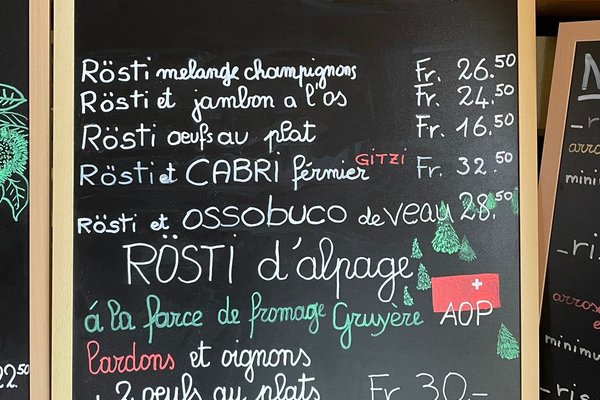 Rösti melange champignons Fr. 26.50
Rösti et jambon a l'os Fr. 24.50
Rösti oeufs au plat Fr. 16.50
Rösti et CABRI férmier GITZI Fr. 32.50
Rösti et OSSOBUCO de veau 28.50
RÖSTI d'alpage
á la farce de fromage Gruyère AOP
Lardons et oignons
+ 2 oeufs au plats Fr 30.-
22.50
minimu
minimum